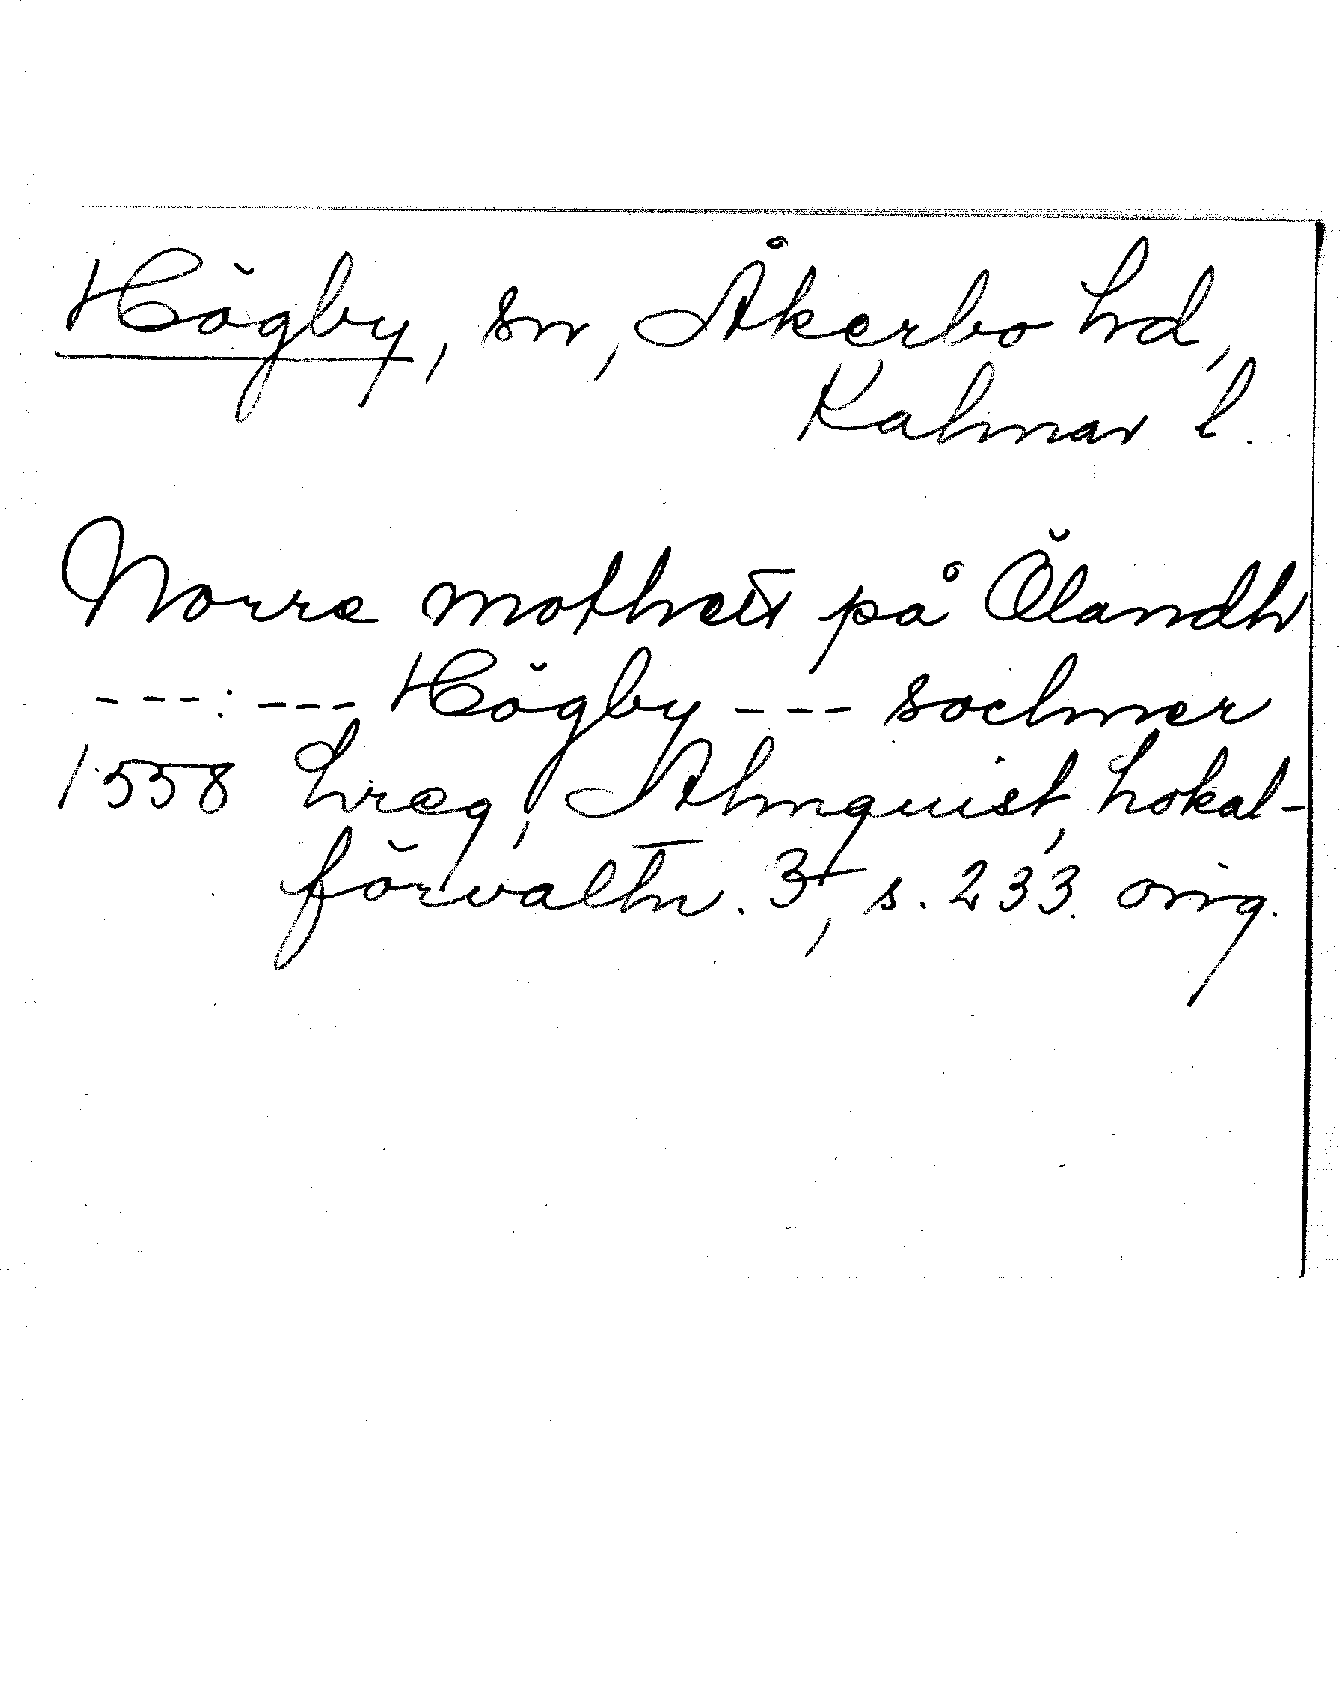 Högby, sn, Åkerbo hd,
Kalmar l.
Norre mothett på Ölandh
---:--- Högby --- sochner
1558 hreg, Almquist, Lokal-
förvaltn. 3, s. 233. orig.